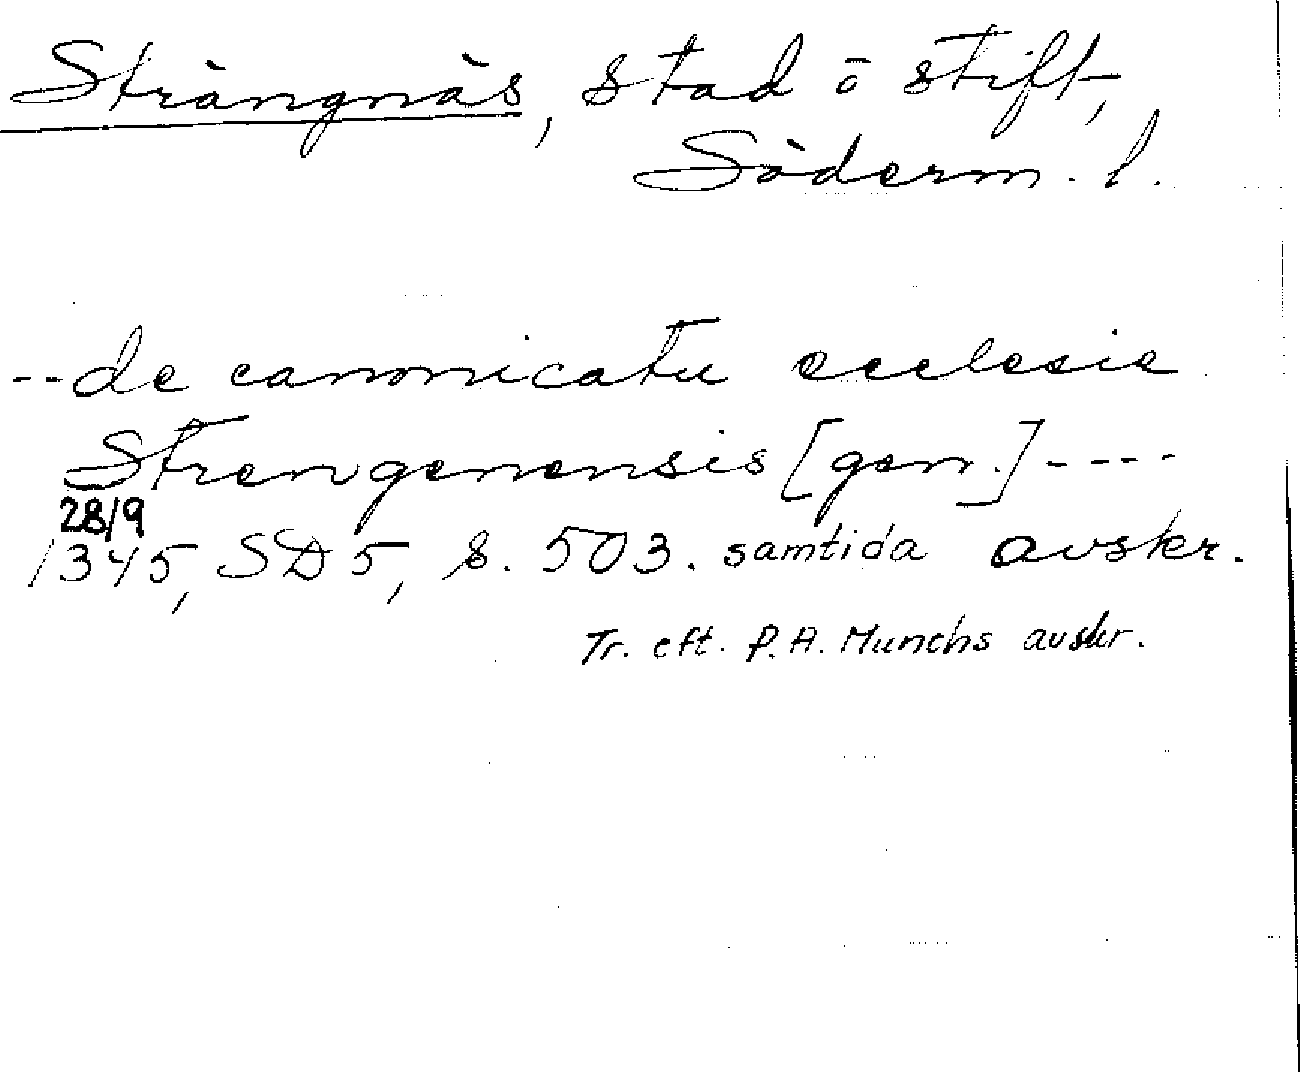 Strängnäs, stad o stift,
Söderm. l.
-- de canonicatu ecclesie
Strengenensis [gen.] ----
28/9
1345, SD 5, s. 503. samtida avskr.
Tr. eft. P. A. Munchs avskr.